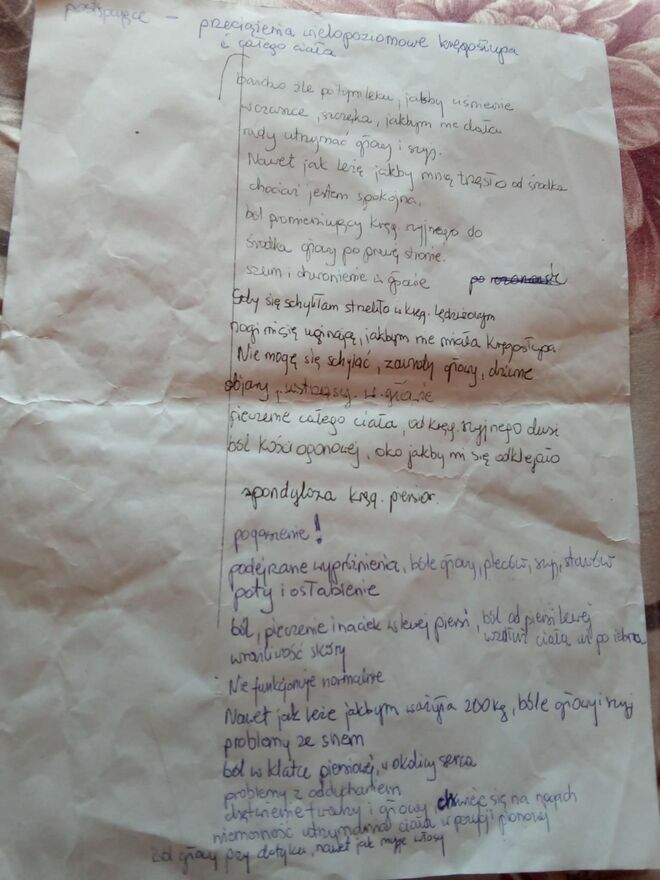 postępujące – przeciążenia wielopoziomowe kręgosłupa
i całego ciała
bardzo źle po tym leku, jakby uśmienie
w czaszce, szczęka, jakbym nie dała
rady utrzymać głowy i szyji.
Nawet jak leżę jakby mną trzęsło od środka
chociaż jestem spokojna.
ból promieniujący kręg. szyjnego do
środka głowy po prawej stronie.
szum i dzwonienie w głowie po
Gdy się schylałam strzeliło w kręg. lędźwiowym
nogi mi się uginają, jakbym nie miała kręgosłupa
Nie mogę się schylać, zawroty głowy, dziwne
objawy, wstrząsy w głowie
pieczenie całego ciała, od kręg. szyjnego dusi
ból kości ogonowej, oko jakby mi się odklejało
spondyloza kręg. piersior.
pogorszenie!
podejrzane wypróżnienia, bóle głowy, pleców, szyji, stawów
poty i osłabienie
ból, pieczenie i nacisk w lewej piersi, ból od piersi lewej
wzdłuż ciała aż po żebra
wrażliwość skóry
Nie funkcjonuje normalnie
Nawet jak leżę jakbym ważyła 200kg, bóle głowy i szyji
problemy ze snem
ból w klatce piersiowej, w okolicy serca
problemy z oddychaniem
drętwienie twarzy i głowy, chwieję się na nogach
niemożność utrzymania ciała w pozycji pionowej
ból głowy przy dotyku, nawet jak myję włosy